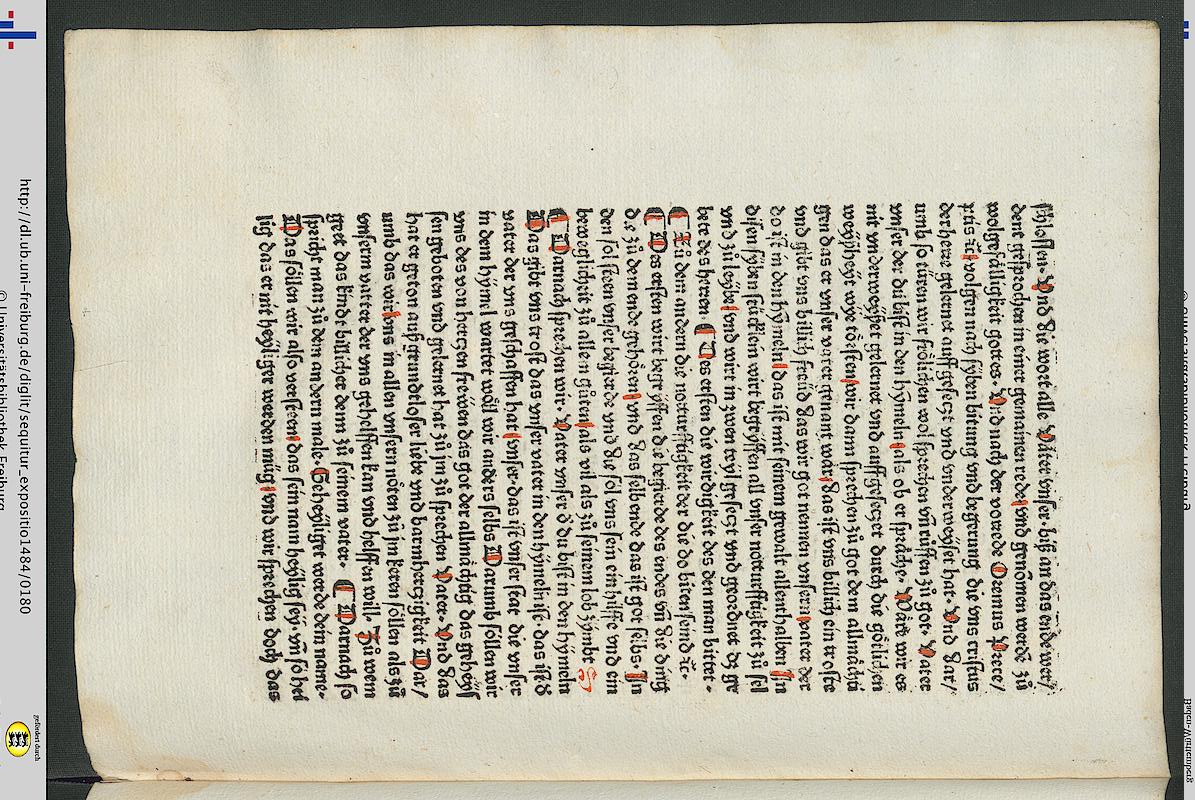 schlossen. Und die wort alle Vater unser. biß an das ende wer/
dent gesprochen in einer gemainen rede und genomen werde zů
wolgefälligkeit gottes. Und nach der vorrede Oremus Prece/
ptis ꝛc̃ volgen nach syben bittung vnd begerung die vns cristus
der herre gelernet auff gesetzt vnd vnderweyset hat. Vnd dar/
umb so türen wir frölichen wol sprechen vñ rüffen zů got. Vater
vnser der du bist in den hymeln als ob er spräche. Wäre wir es
nit vnderweyset gelernet vnd auffgesetzet durch die götlichen
weyßheyt wye törsten wir dann sprechen zů got dem allmächti
gen das er vnser vater genant wär das ist vns billich ein troste
vnd gibt vns billich freüd das wir got nemen vnsern vater der
do ist in den hymeln das ist mit seinem gewalt allenthalben In
disen syben stücklein wirt begryffen all vnser notturfftigkeit zů sel
vnd zů leybe vnd wirt in zwen teyl gesetzt vnd geordnet dz ge
bete des herren. Des ersten die wirdigkeit des den man bittet.
Zů dem andern die notturfftigkeit der die do biten seind ꝛc.
Des ersten wirt begryffen die begirde des endes vñ die ding
die zů dem ende gehören vnd das selb ende das ist got selbs. In
den sol steen vnser begirde vnd die sol vns sein ein hilffe vnd ein
beweglichait zů allem gůten als vil als zů seinem lob zymbt
Darnach sprechen wir. Vater vnser d' du bist in den hymeln
Das gibt vns trost das vnser vater in den hymeln ist. das ist d'
vater der vns geschaffen hat vnser. das ist vnser stat die vnser
in dem hymel wartet wöll wir anders selbs Darumb söllen wir
vns des von hertzen frewen das got der allmächtig das geheyß
sen geboten vnd gelernet hat zů jm zů sprechen Vater. Vnd das
hat er geton auß grundtloser liebe vnd barmhertzigkeit Dar/
umb das wir vns in allen vnsern nöten zů jm keren söllen als zů
vnserm vatter der vns gehelffen kan vnd helffen will. Zů wem
geet das kindt billicher denn zů seinem vater. Darnach so
spricht man zů dem andern male. Geheyliget werde dein name.
Das söllen wir also versteen das sein nam heylig sey. vñ so hei
lig das er nit heyliger werden müg vnd wir sprechen doch das
http://dl.ub.uni-freiburg.de/diglit/sequitur_expositio1484/0180
© Universitätsbibliothek Freiburg
gefördert durch